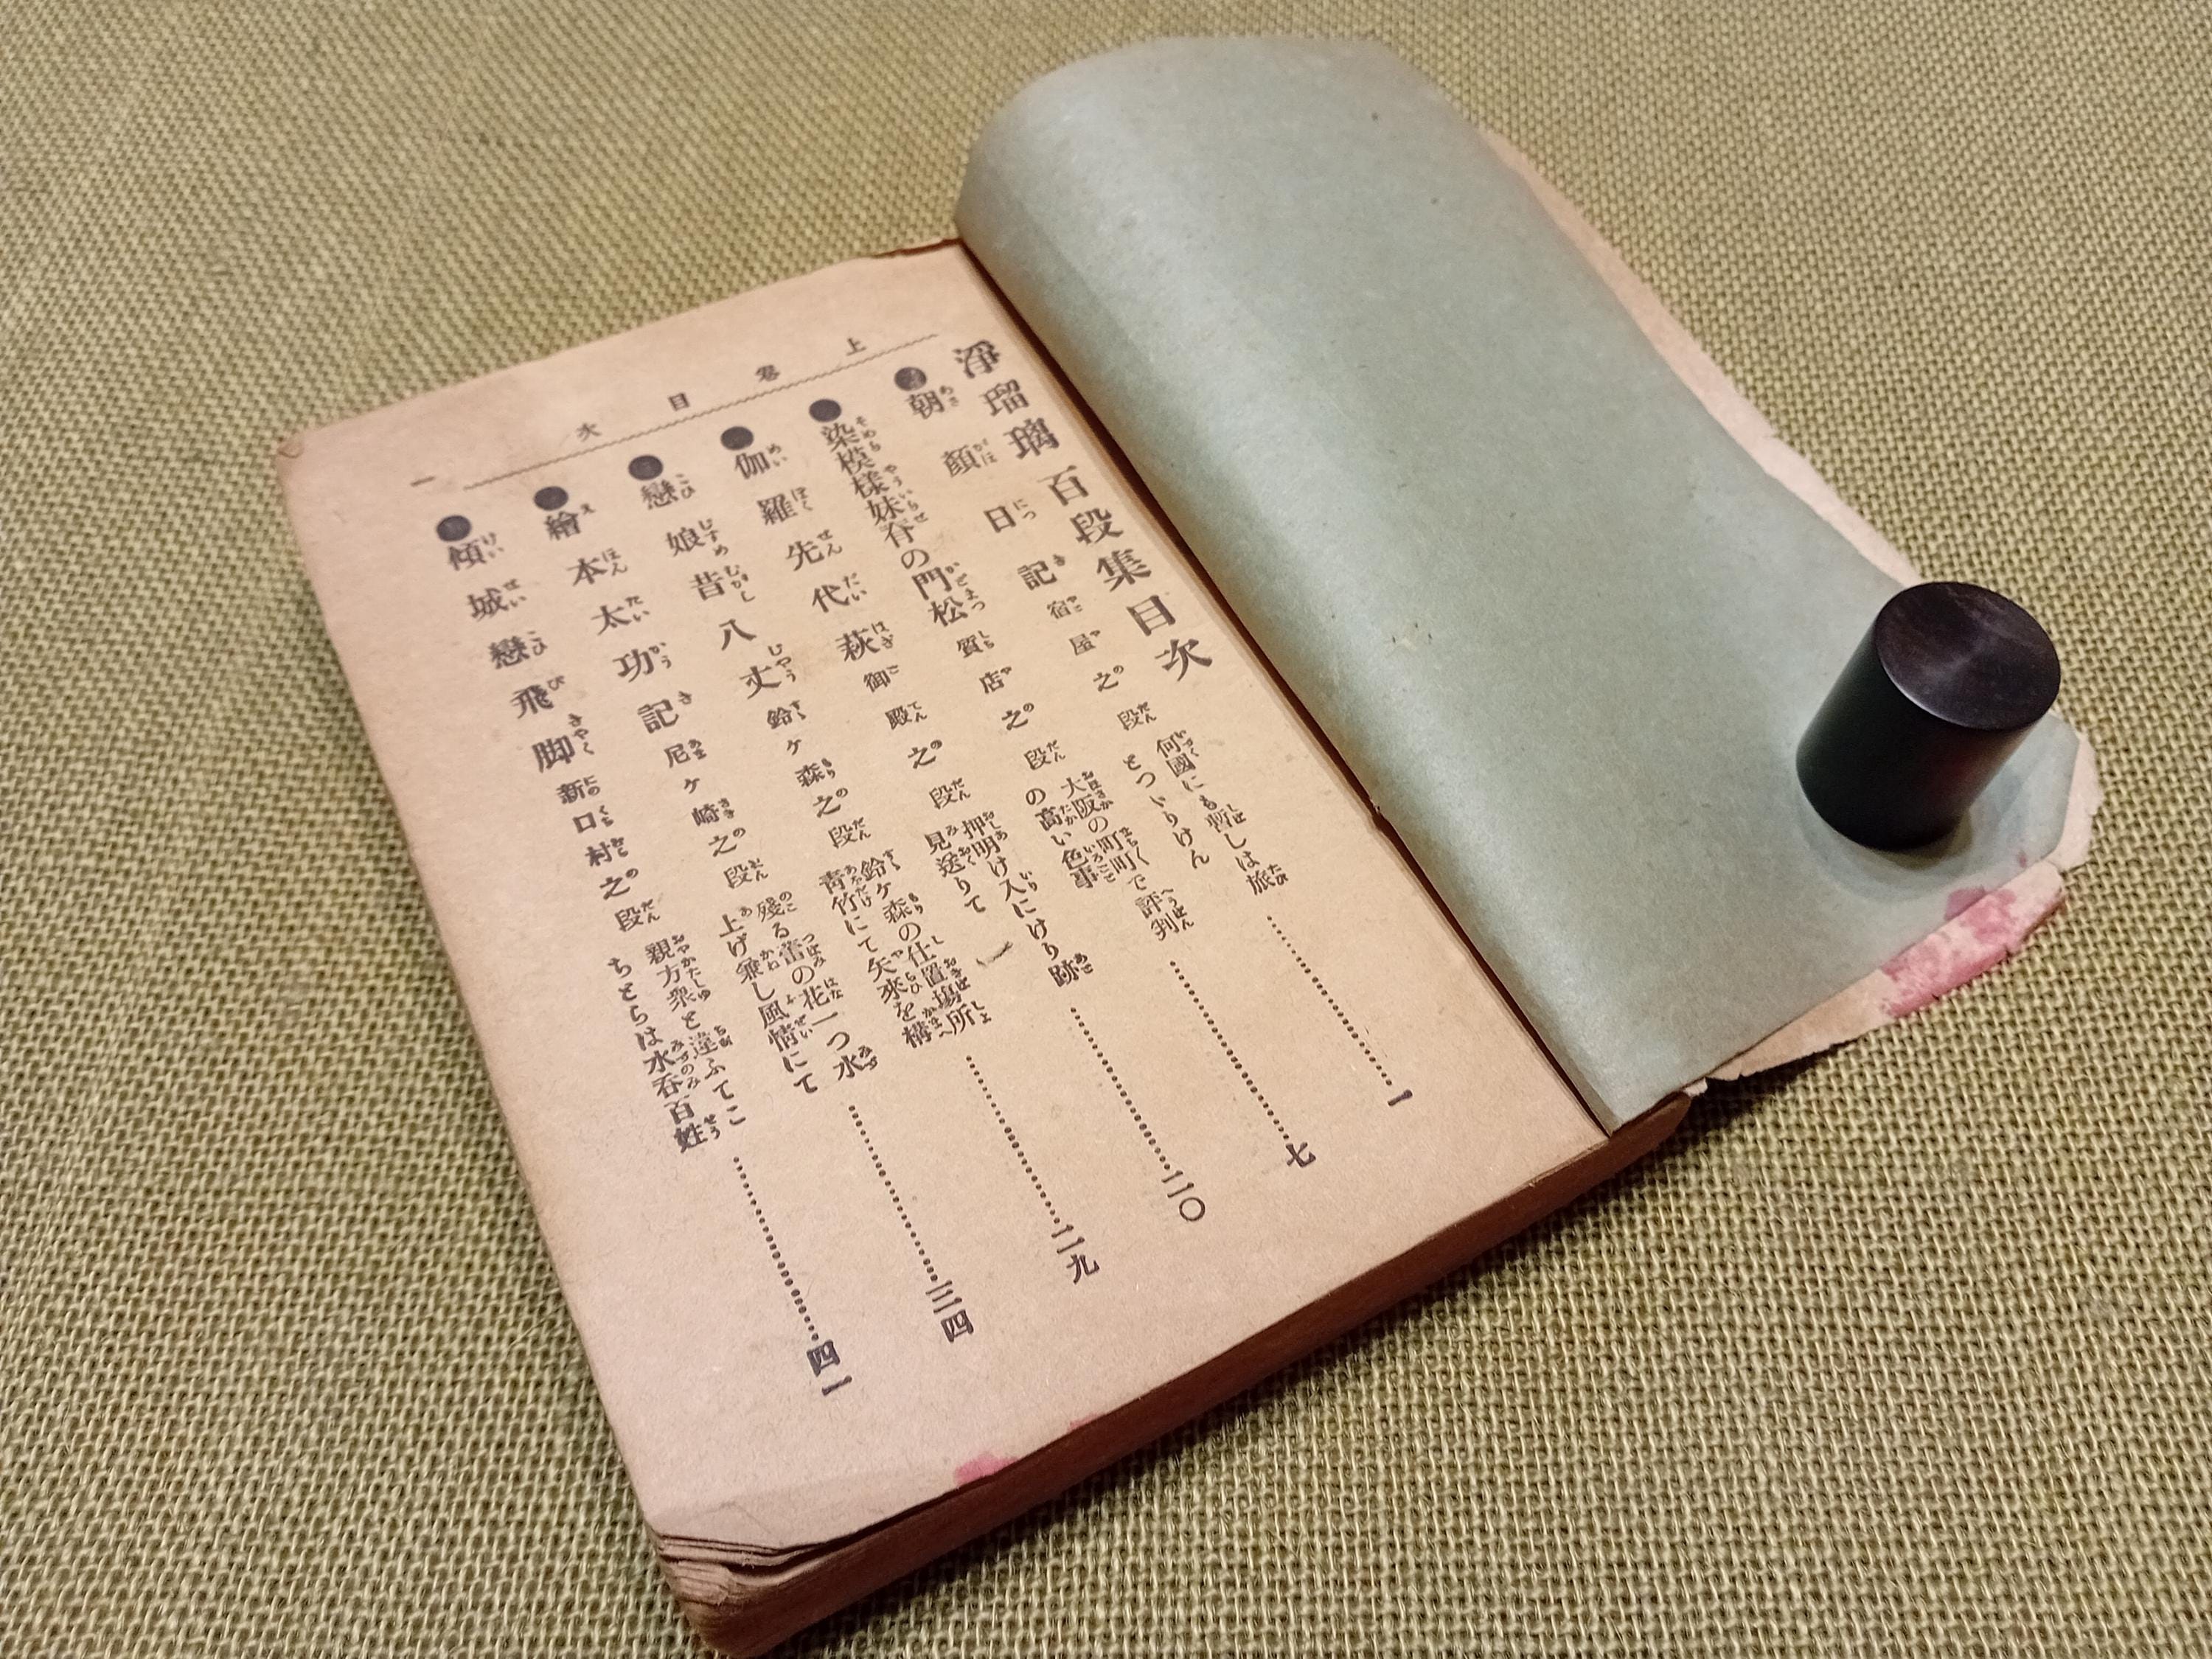 淨瑠璃百段集目次
朝顏日記宿屋之段 何國にも暫しは旅
とつゞりけん……一
染模樣妹脊の門松質店之段 大阪の町町で評判
の高い色事……七
伽羅先代萩御殿之段 押明け入にけり跡
見送りて……二〇
戀娘昔八丈鈴ケ森之段 鈴ケ森の仕置場所
靑竹にて矢來を構……二九
繪本太功記尼ケ崎之段 殘る蕾の花一つ水
上げ兼し風情にて……三四
傾城戀飛脚新口村之段 親方衆と違ふてこ
ちとらは水呑百姓……四一
上卷目次 一